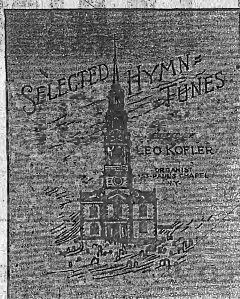 SELECTED HYMN=
TUNES
LEO KOFLER
ORGANIST
ST. PAUL'S CHAPEL
N.Y.